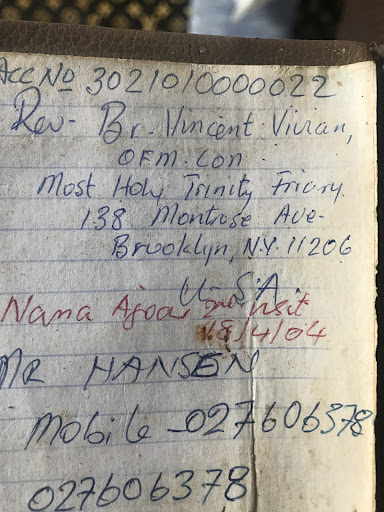 Acc No 3021010000022
Rev- Br. Vincent Vivian,
OFM. Con
Most Holy Trinity Friary.
138 Montrose Ave-
Brooklyn, N.Y. 11206
U.S.A.
Nana 2nd visit
18/4/04
MR HANSEN
Mobile -027606378
027606378